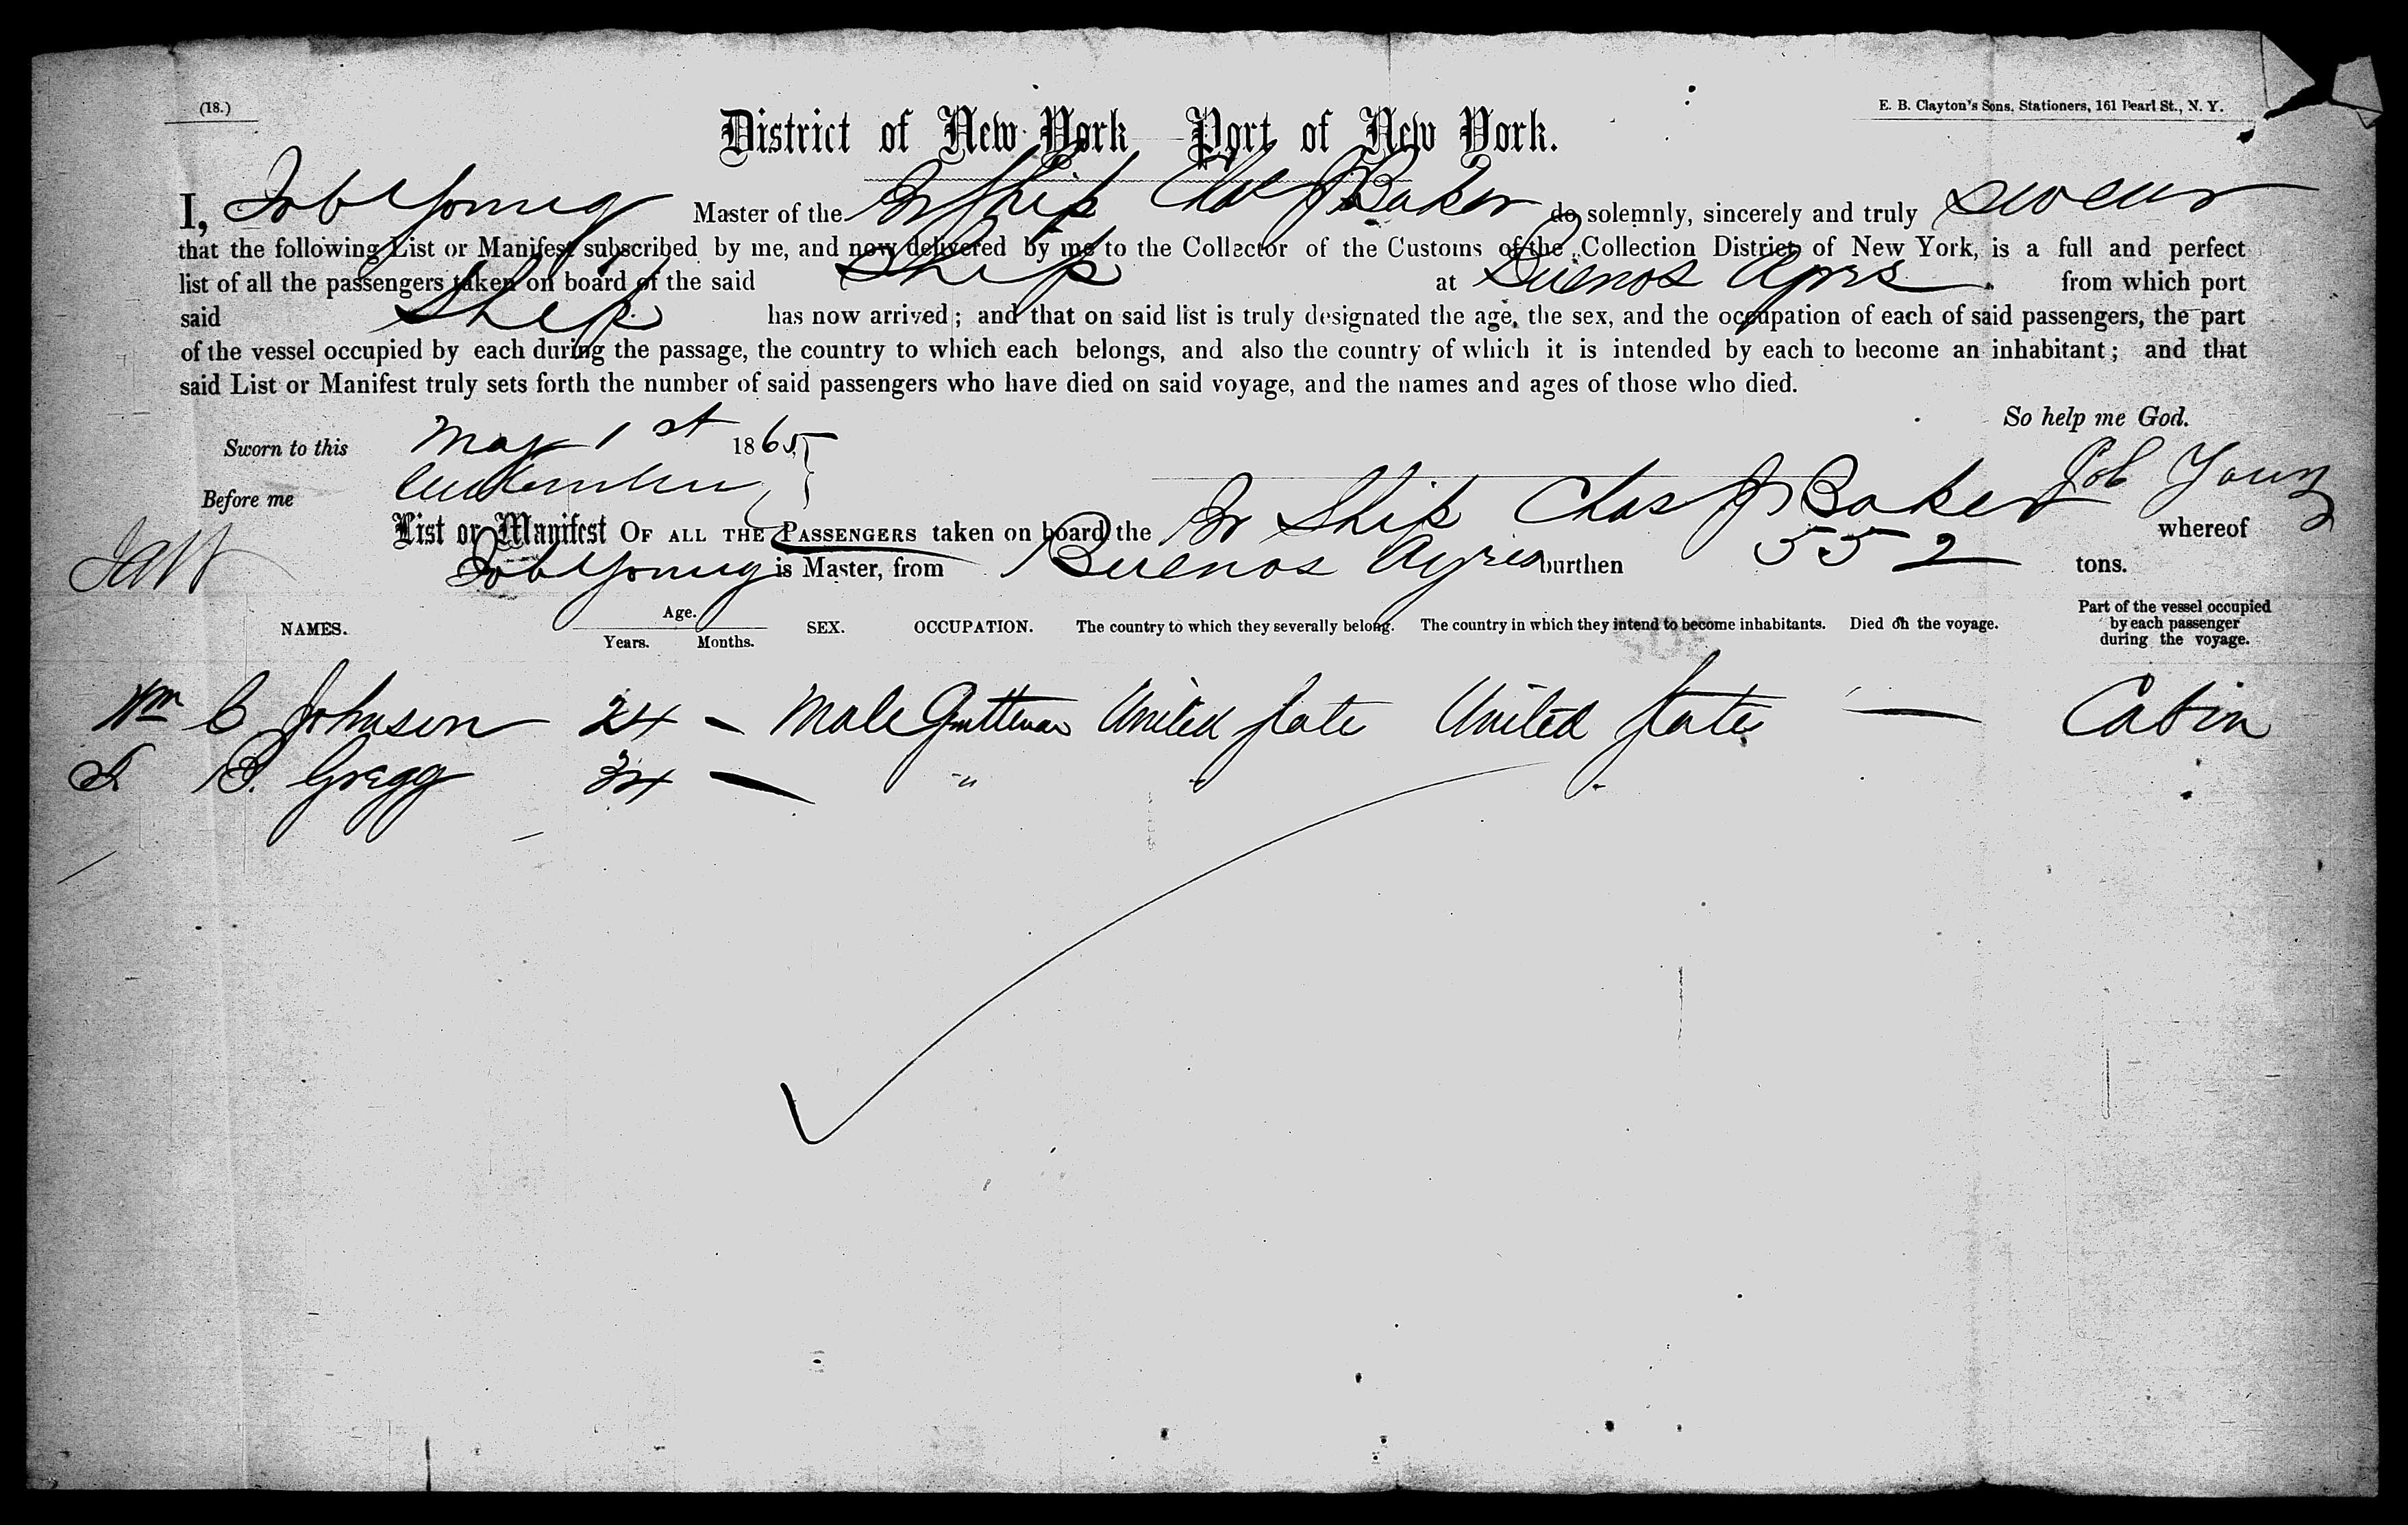 (18.)
E. B. Clayton's Sons, Stationers, 161 Pearl St., N. Y.
District of New York Port of New York.
I, Job Young Master of the Br Ship Chas J Baker do solemnly, sincerely and truly swear
that the following List or Manifest subscribed by me, and now delivered by me to the Collector of the Customs of the Collection District of New York, is a full and perfect
list of all the passengers taken on board of the said Ship at Buenos Ayres from which port
said Ship has now arrived; and that on said list is truly designated the age, the sex, and the occupation of each of said passengers, the part
of the vessel occupied by each during the passage, the country to which each belongs, and also the country of which it is intended by each to become an inhabitant; and that
said List or Manifest truly sets forth the number of said passengers who have died on said voyage, and the names and ages of those who died.
So help me God.
Sworn to this May 1st 1865
Before me
Job Young
List or Manifest OF ALL THE PASSENGERS taken on board the Br Ship Chas J Baker whereof
Job Young is Master, from Buenos Ayres burthen 552 tons.
NAMES. Age. Years. Months. SEX. OCCUPATION. The country to which they severally belong. The country in which they intend to become inhabitants. Died on the voyage. Part of the vessel occupied by each passenger during the voyage.
Wm C Johnson 24 - Male Gentleman United State United States — Cabin
B. Gregg 34 — " " "